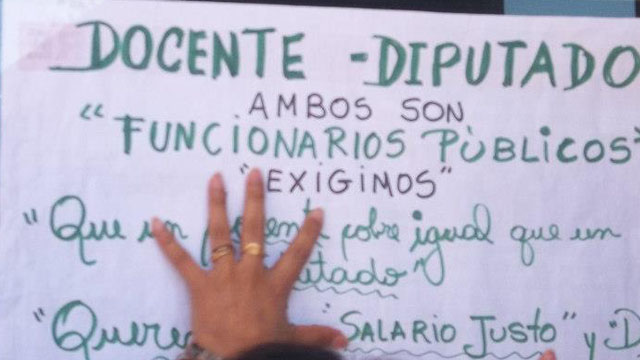 DOCENTE - DIPUTADO
AMBOS SON
"FUNCIONARIOS PÙBLICOS"
"EXIGIMOS"
"Que un pobre igual que un
"SALARIO JUSTO" y "D